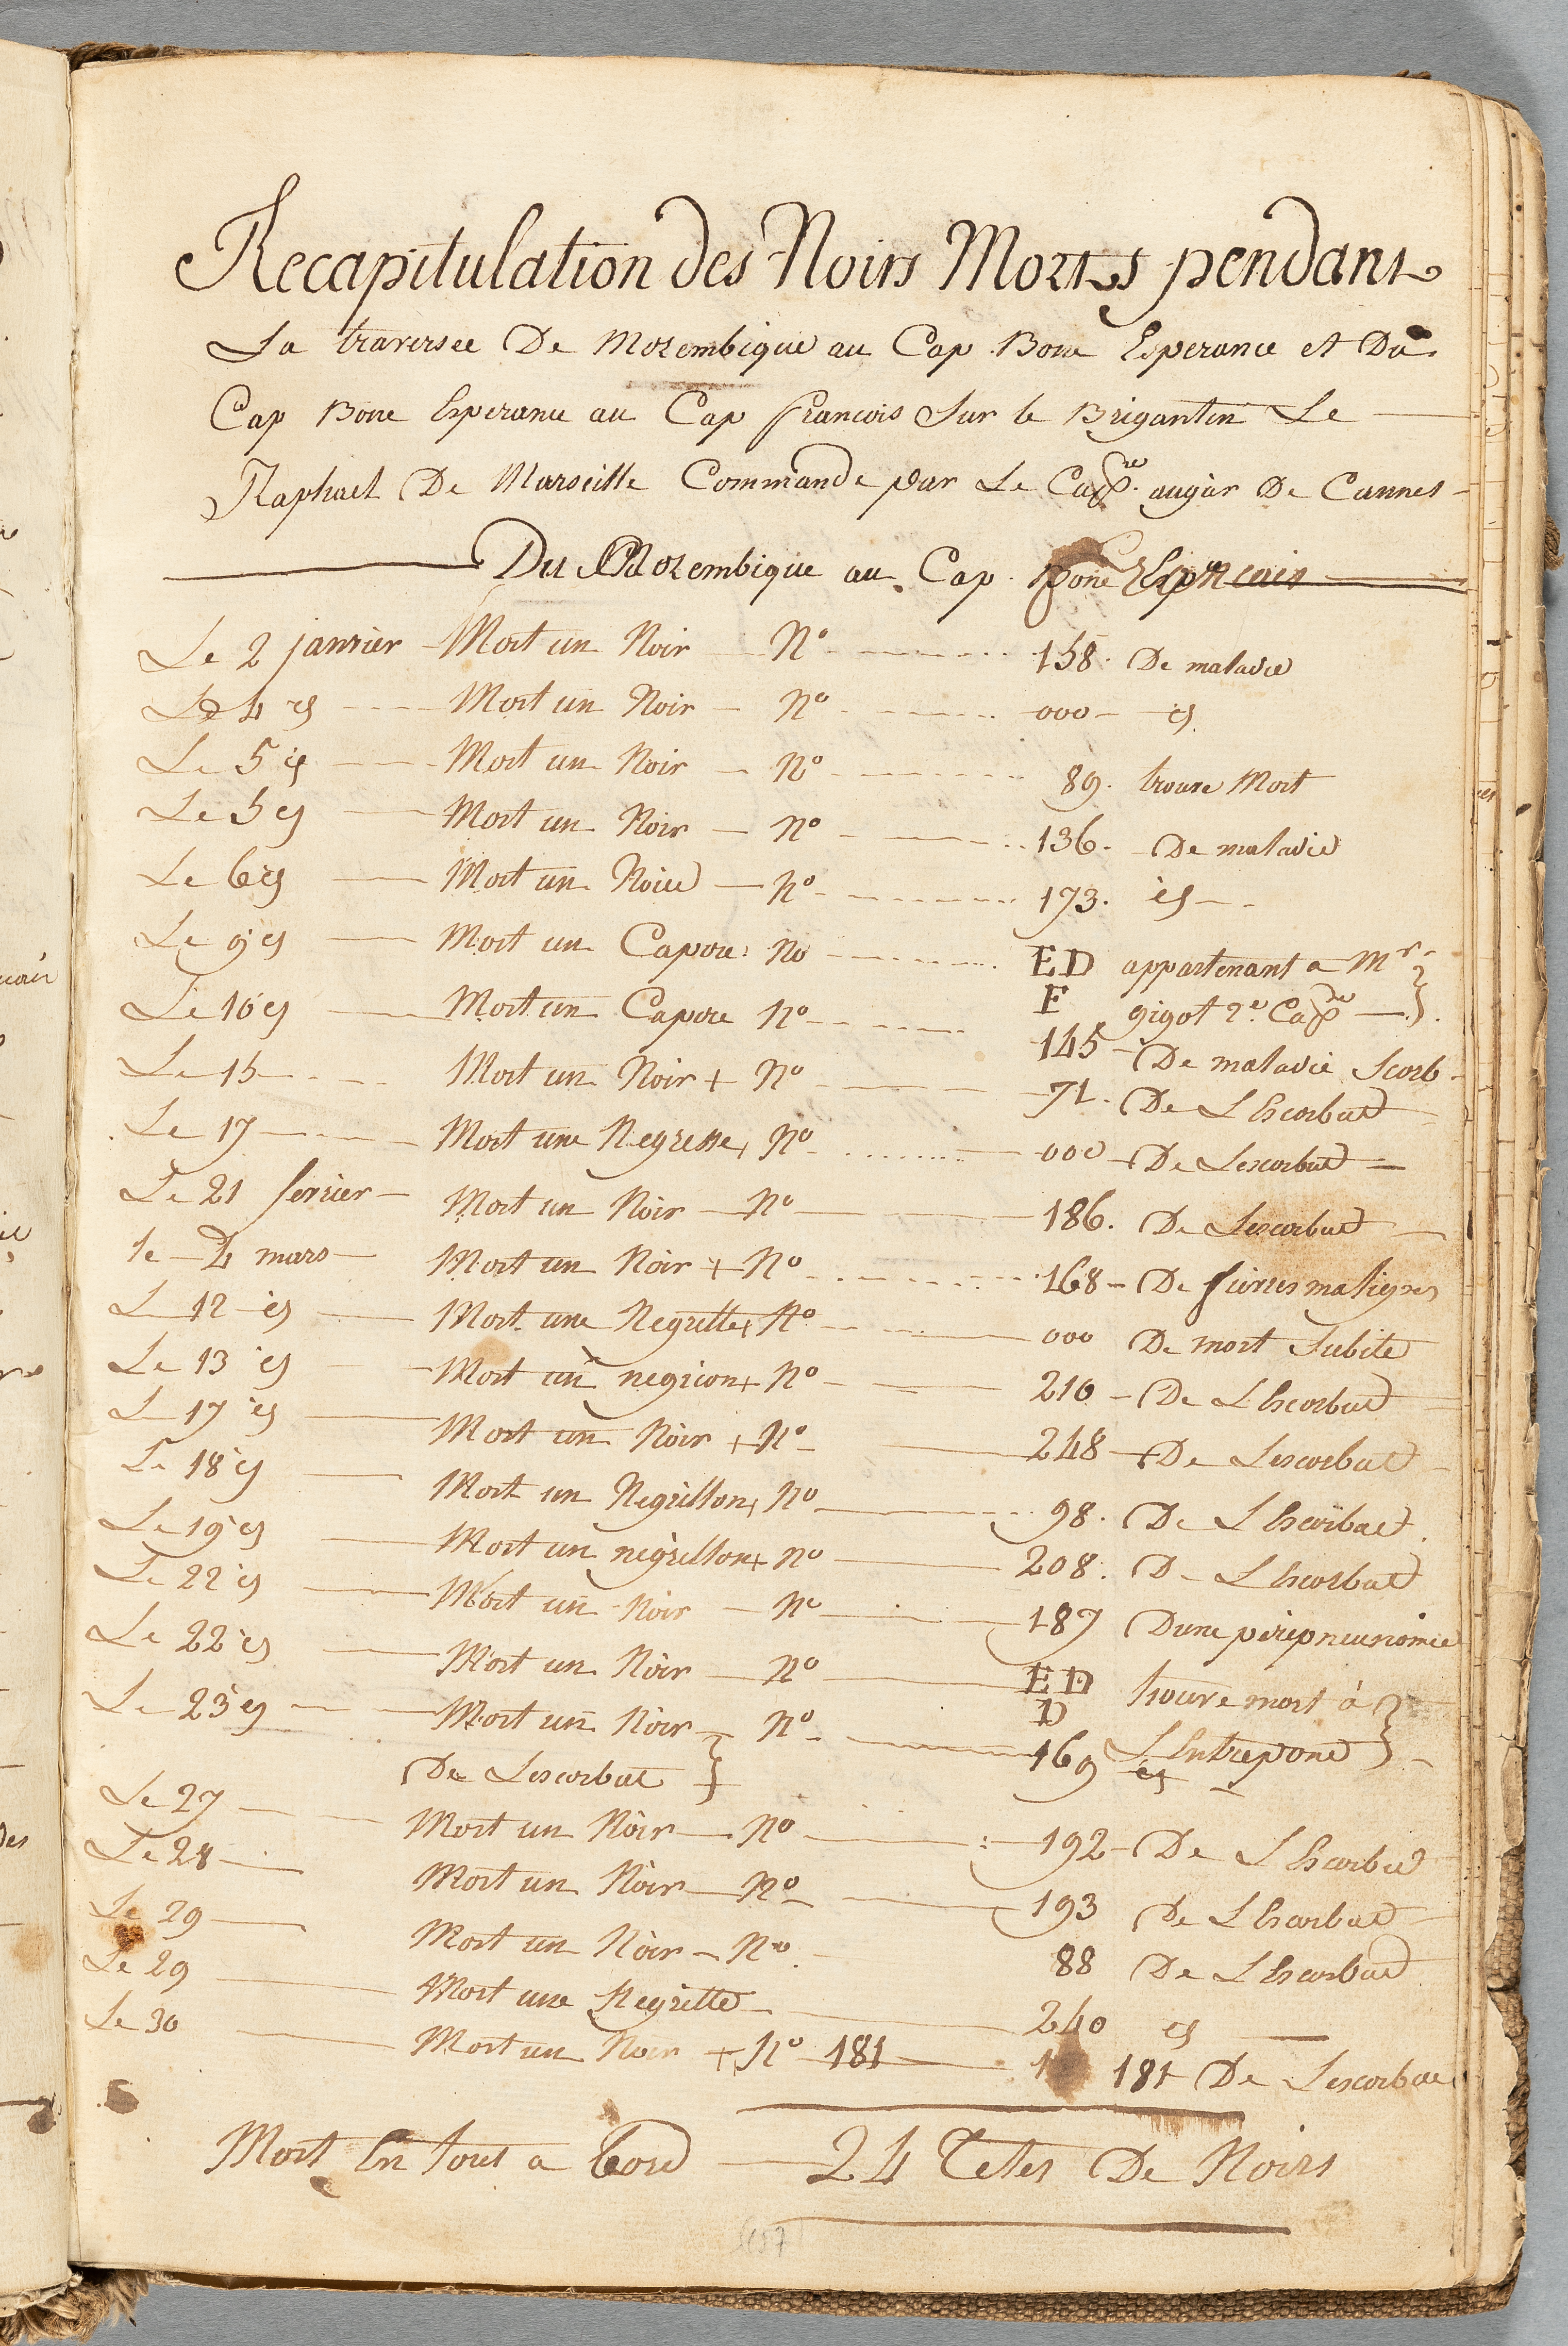 Recapitulation des Noirs Morts pendant
La traversee De Mozembique au Cap Bone Esperance et Du
Cap Bone Esperance au Cap francois Sur le Brigantin Le
Raphael De Marseille Commande par Le Cap.ne augier De Cannes
Du Mozembique au Cap Bone
Le 2 janvier Mort un Noir N° 158. De maladie
Le 4 id Mort un Noir N° 000 id
Le 5 id Mort un Noir N° 89. trouve Mort
Le 5 id Mort un Noir N° 136. De maladie
Le 6 id Mort un Noire N° 173. id
Le 9 id Mort un Capore No ED appartenant a Mr
F gigot 2e. Cap.ne
Le 10 id Mort un Capore N° 145 De maladie Scorb
Le 15 Mort un Noir + N° 71. De L Escorbut
Le 17 Mort une Negresse + N° 000 De Lescorbut
Le 21 fevrier Mort un Noir N° 186. De Lescorbut
le 4 mars Mort un Noir + N° 168 De fievres malignes
L 12 id Mort une Negritte + N° 000 De mort Subite
Le 13 id Mort un negrion + N° 210 De L Escorbut
L 17 id Mort un Noir + N° 248 De Lescorbut
Le 18 id Mort un Negrillon + N° 98. De L Escorbut
Le 19 id Mort un negrillon + N° 208. De L Escorbut
Le 22 id Mort un Noir N° 187 Dune peripneunomie
Le 22 id Mort un Noir N° ED trouve mort à
D L Entrepond
Le 23 id Mort un Noir N° 169 id
De Lescorbut
Le 27 Mort un Noir N° 192 De L Escorbut
Le 28 Mort un Noir N° 193 De L Escorbut
Le 29 Mort un Noir N° 88 De L Escorbut
Le 29 Mort une Negritte 240 id
Le 30 Mort un Noir + N° 181 181 De Lescorbut
Mort En tout a bord 24 Tetes De Noirs